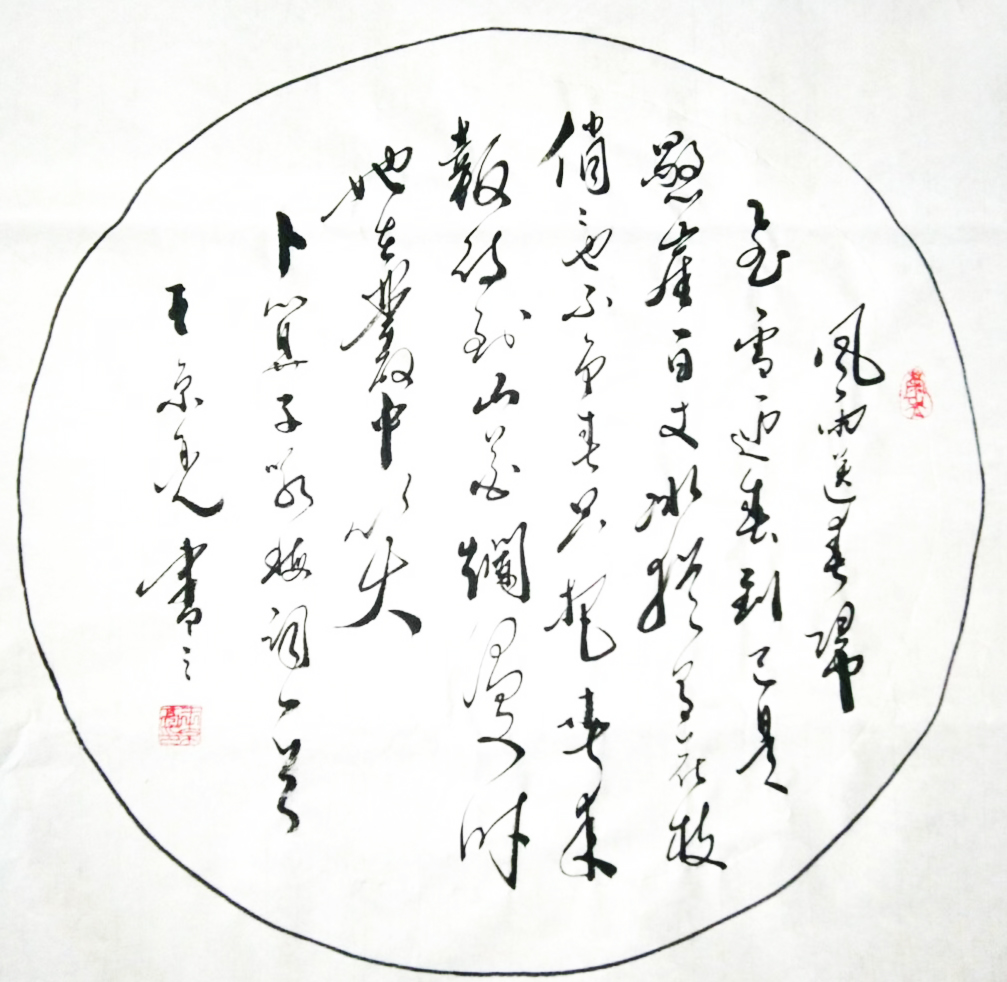 風雨送春歸
飛雪迎春到已是
懸崖百丈冰猶有花枝
俏也不爭春只把春來
報待到山花爛漫时
她在叢中笑
卜算子咏梅詞一首
王京書之